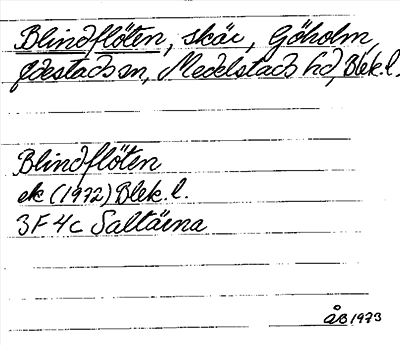 Blindflöten, skär, Göholm,
Edestads sn, Medelstads hd, Blek. l.
Blindflöten
ek (1972) Blek. l.
3F 4c Saltärna
ÅB 1973